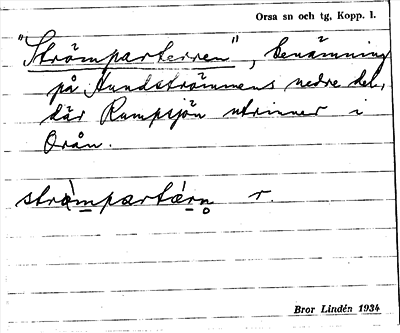 Orsa sn och tg, Kopp. l.
"Strömparterren", benämning
på Hundströmmens nedre del,
där Rumpsjön utrinner i
Orån.
strö̀mpartǽrn r.
Bror Lindén 1934